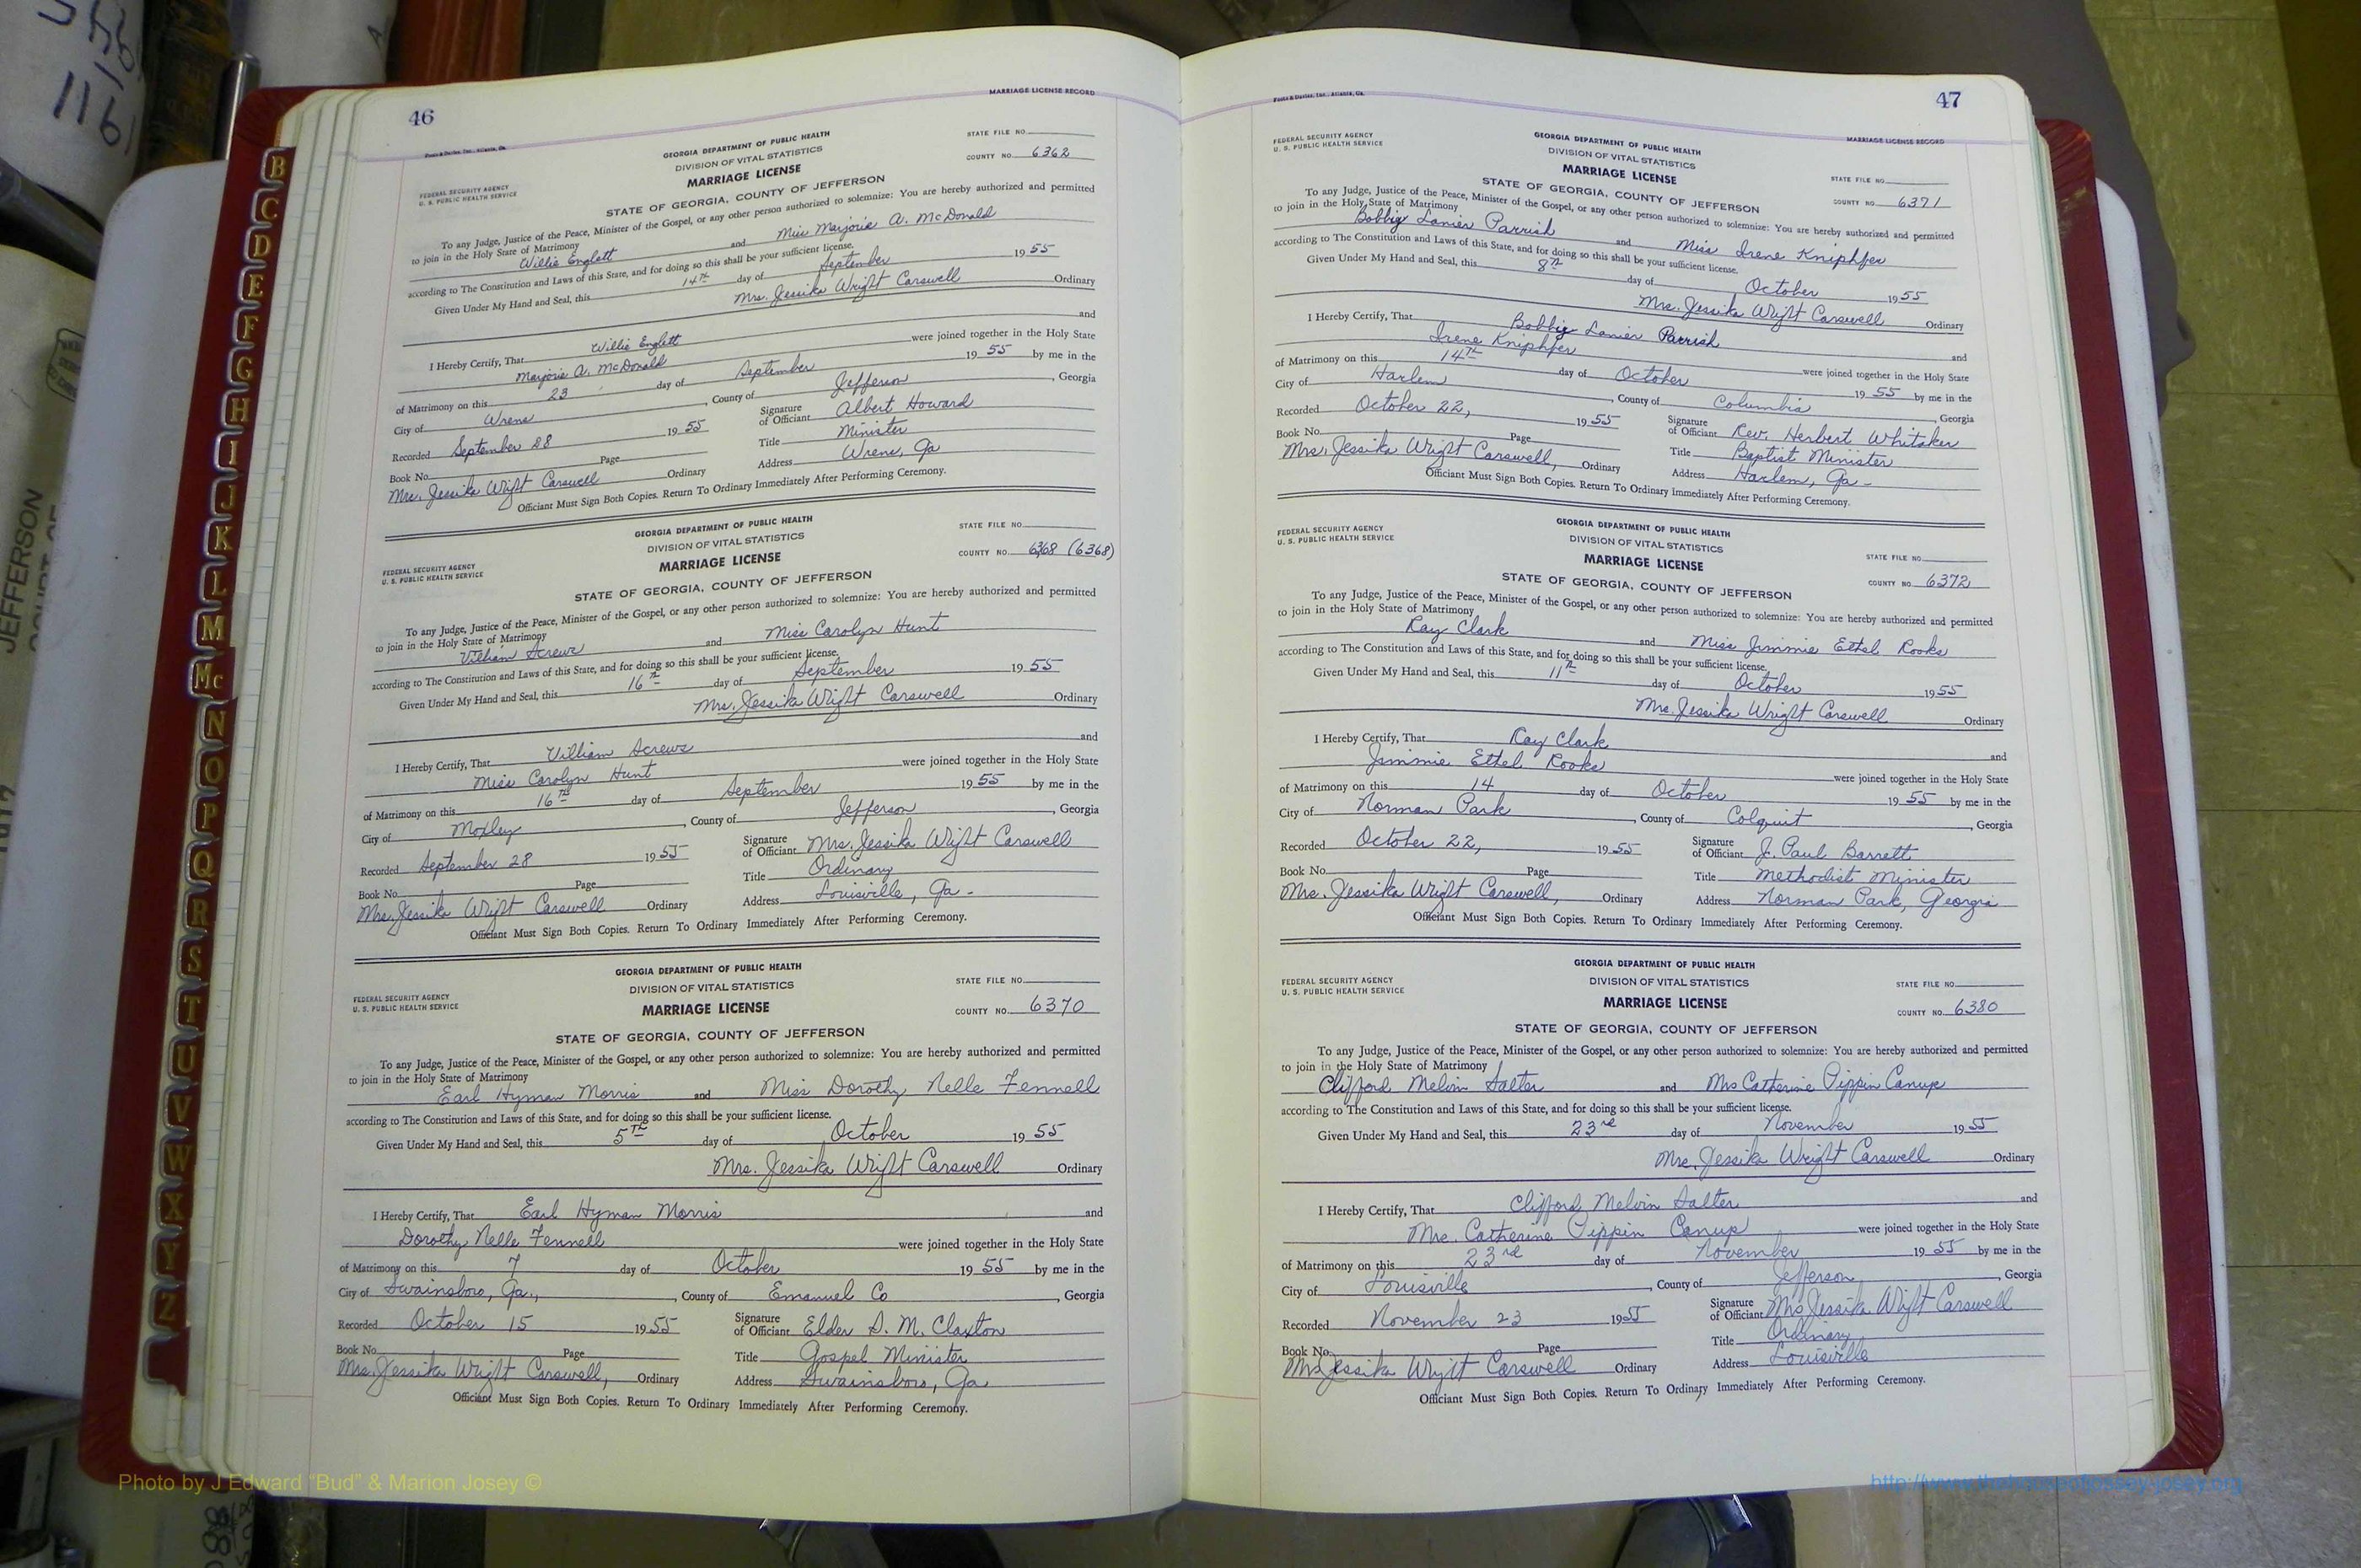 46
MARRIAGE LICENSE RECORD
Foote & Davies, Inc., Atlanta, Ga.
GEORGIA DEPARTMENT OF PUBLIC HEALTH
DIVISION OF VITAL STATISTICS
MARRIAGE LICENSE
STATE OF GEORGIA, COUNTY OF JEFFERSON
FEDERAL SECURITY AGENCY
U. S. PUBLIC HEALTH SERVICE
STATE FILE NO.
COUNTY NO. 6362
To any Judge, Justice of the Peace, Minister of the Gospel, or any other person authorized to solemnize: You are hereby authorized and permitted
to join in the Holy State of Matrimony
Willie Englett and Miss Marjorie A. McDonald
according to The Constitution and Laws of this State, and for doing so this shall be your sufficient license.
Given Under My Hand and Seal, this 14th day of September 1955
Mrs. Jessika Wright Carswell Ordinary
I Hereby Certify, That Willie Englett and
Marjorie A. McDonald were joined together in the Holy State
of Matrimony on this 23 day of September 1955 by me in the
City of Wrens, County of Jefferson, Georgia
Recorded September 28 1955 Signature of Officiant Albert Howard
Book No. Page Title Minister
Mrs. Jessika Wright Carswell Ordinary Address Wrens, Ga
Officiant Must Sign Both Copies. Return To Ordinary Immediately After Performing Ceremony.
GEORGIA DEPARTMENT OF PUBLIC HEALTH
DIVISION OF VITAL STATISTICS
MARRIAGE LICENSE
STATE OF GEORGIA, COUNTY OF JEFFERSON
FEDERAL SECURITY AGENCY
U. S. PUBLIC HEALTH SERVICE
STATE FILE NO.
COUNTY NO. 6368 (6368)
To any Judge, Justice of the Peace, Minister of the Gospel, or any other person authorized to solemnize: You are hereby authorized and permitted
to join in the Holy State of Matrimony
William Screws and Miss Carolyn Hunt
according to The Constitution and Laws of this State, and for doing so this shall be your sufficient license.
Given Under My Hand and Seal, this 16th day of September 1955
Mrs. Jessika Wright Carswell Ordinary
I Hereby Certify, That William Screws and
Miss Carolyn Hunt were joined together in the Holy State
of Matrimony on this 16th day of September 1955 by me in the
City of Moxley, County of Jefferson, Georgia
Recorded September 28 1955 Signature of Officiant Mrs. Jessika Wright Carswell
Book No. Page Title Ordinary
Mrs. Jessika Wright Carswell Ordinary Address Louisville, Ga.
Officiant Must Sign Both Copies. Return To Ordinary Immediately After Performing Ceremony.
GEORGIA DEPARTMENT OF PUBLIC HEALTH
DIVISION OF VITAL STATISTICS
MARRIAGE LICENSE
STATE OF GEORGIA, COUNTY OF JEFFERSON
FEDERAL SECURITY AGENCY
U. S. PUBLIC HEALTH SERVICE
STATE FILE NO.
COUNTY NO. 6370
To any Judge, Justice of the Peace, Minister of the Gospel, or any other person authorized to solemnize: You are hereby authorized and permitted
to join in the Holy State of Matrimony
Earl Hyman Morris and Miss Dorothy Nelle Fennell
according to The Constitution and Laws of this State, and for doing so this shall be your sufficient license.
Given Under My Hand and Seal, this 5th day of October 1955
Mrs. Jessika Wright Carswell Ordinary
I Hereby Certify, That Earl Hyman Morris and
Dorothy Nelle Fennell were joined together in the Holy State
of Matrimony on this 7 day of October 1955 by me in the
City of Swainsboro, Ga., County of Emanuel Co, Georgia
Recorded October 15 1955 Signature of Officiant Elder S. M. Claxton
Book No. Page Title Gospel Minister
Mrs. Jessika Wright Carswell, Ordinary Address Swainsboro, Ga
Officiant Must Sign Both Copies. Return To Ordinary Immediately After Performing Ceremony.
47
Foote & Davies, Inc., Atlanta, Ga.
MARRIAGE LICENSE RECORD
FEDERAL SECURITY AGENCY
U. S. PUBLIC HEALTH SERVICE
GEORGIA DEPARTMENT OF PUBLIC HEALTH
DIVISION OF VITAL STATISTICS
MARRIAGE LICENSE
STATE OF GEORGIA, COUNTY OF JEFFERSON
STATE FILE NO.
COUNTY NO. 6371
To any Judge, Justice of the Peace, Minister of the Gospel, or any other person authorized to solemnize: You are hereby authorized and permitted
to join in the Holy State of Matrimony
Bobbie Lanier Parrish and Miss Irene Kniphfer
according to The Constitution and Laws of this State, and for doing so this shall be your sufficient license.
Given Under My Hand and Seal, this 8th day of October 1955
Mrs. Jessika Wright Carswell Ordinary
I Hereby Certify, That Bobbie Lanier Parrish and
Irene Kniphfer were joined together in the Holy State
of Matrimony on this 14th day of October 1955 by me in the
City of Harlem, County of Columbia, Georgia
Recorded October 22, 1955 Signature of Officiant Rev. Herbert Whitaker
Book No. Page Title Baptist Minister
Mrs. Jessika Wright Carswell, Ordinary Address Harlem, Ga.
Officiant Must Sign Both Copies. Return To Ordinary Immediately After Performing Ceremony.
FEDERAL SECURITY AGENCY
U. S. PUBLIC HEALTH SERVICE
GEORGIA DEPARTMENT OF PUBLIC HEALTH
DIVISION OF VITAL STATISTICS
MARRIAGE LICENSE
STATE OF GEORGIA, COUNTY OF JEFFERSON
STATE FILE NO.
COUNTY NO. 6372
To any Judge, Justice of the Peace, Minister of the Gospel, or any other person authorized to solemnize: You are hereby authorized and permitted
to join in the Holy State of Matrimony
Ray Clark and Miss Jimmie Ethel Rooks
according to The Constitution and Laws of this State, and for doing so this shall be your sufficient license.
Given Under My Hand and Seal, this 11th day of October 1955
Mrs. Jessika Wright Carswell Ordinary
I Hereby Certify, That Ray Clark and
Jimmie Ethel Rooks were joined together in the Holy State
of Matrimony on this 14 day of October 1955 by me in the
City of Norman Park, County of Colquit, Georgia
Recorded October 22, 1955 Signature of Officiant J. Paul Barrett
Book No. Page Title Methodist Minister
Mrs. Jessika Wright Carswell, Ordinary Address Norman Park, Georgia
Officiant Must Sign Both Copies. Return To Ordinary Immediately After Performing Ceremony.
FEDERAL SECURITY AGENCY
U. S. PUBLIC HEALTH SERVICE
GEORGIA DEPARTMENT OF PUBLIC HEALTH
DIVISION OF VITAL STATISTICS
MARRIAGE LICENSE
STATE OF GEORGIA, COUNTY OF JEFFERSON
STATE FILE NO.
COUNTY NO. 6380
To any Judge, Justice of the Peace, Minister of the Gospel, or any other person authorized to solemnize: You are hereby authorized and permitted
to join in the Holy State of Matrimony
Clifford Melvin Salter and Mrs Catherine Pippin Canup
according to The Constitution and Laws of this State, and for doing so this shall be your sufficient license.
Given Under My Hand and Seal, this 23rd day of November 1955
Mrs. Jessika Wright Carswell Ordinary
I Hereby Certify, That Clifford Melvin Salter and
Mrs. Catherine Pippin Canup were joined together in the Holy State
of Matrimony on this 23rd day of November 1955 by me in the
City of Louisville, County of Jefferson, Georgia
Recorded November 23 1955 Signature of Officiant Mrs Jessika Wright Carswell
Book No. Page Title Ordinary
Mrs Jessika Wright Carswell Ordinary Address Louisville
Officiant Must Sign Both Copies. Return To Ordinary Immediately After Performing Ceremony.
B
C
D
E
F
G
H
I
J
K
L
M
Mc
N
O
P
Q
R
S
T
U
V
W
X
Y
Z
JEFFERSON
Photo by J Edward "Bud" & Marion Josey ©